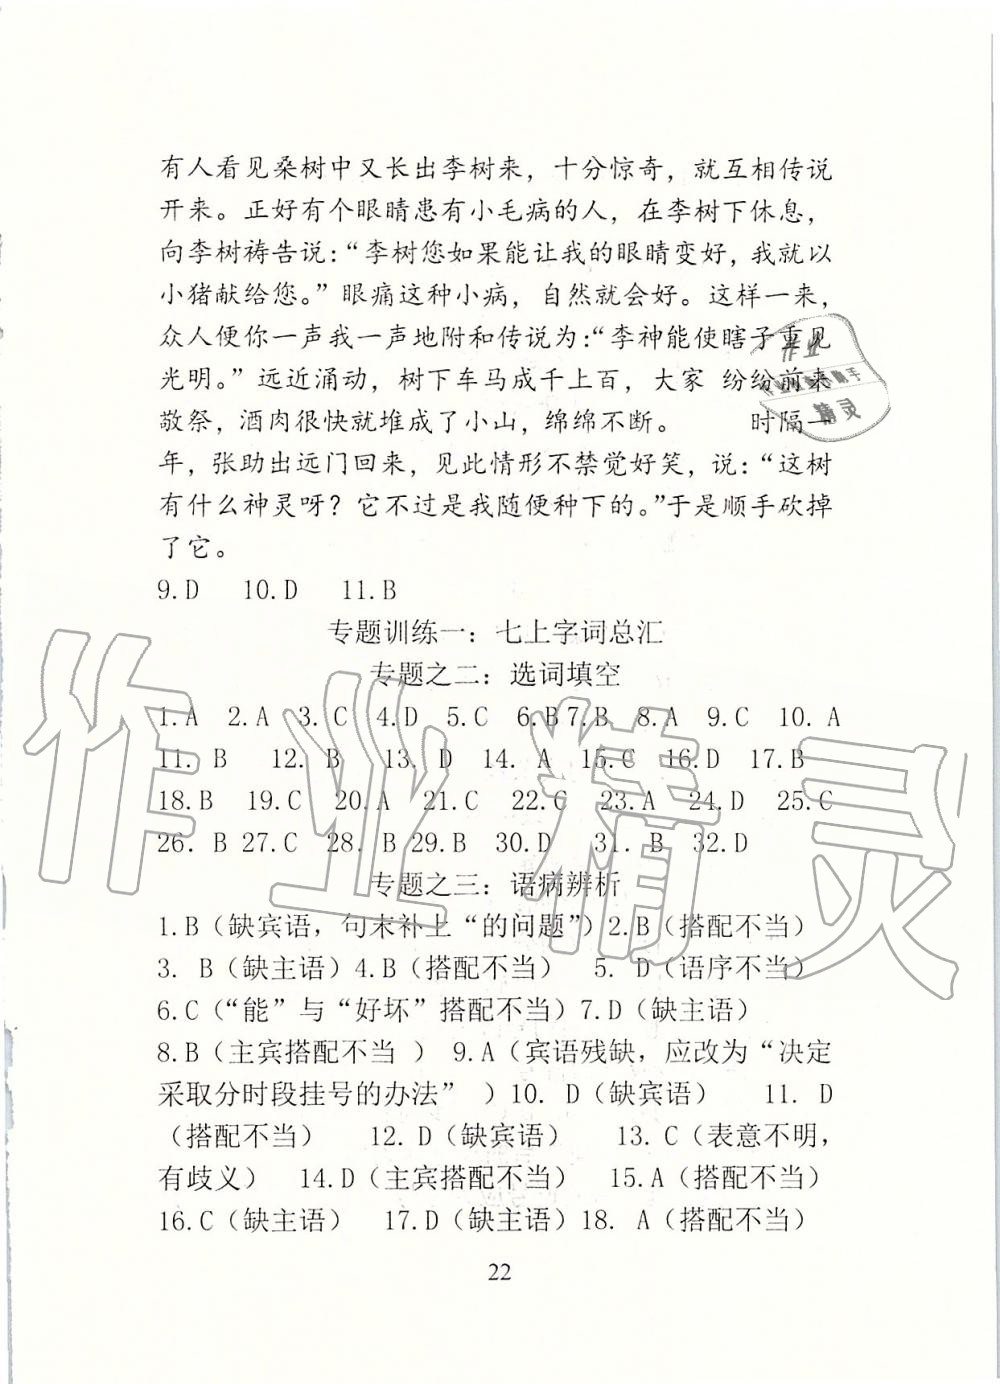 有人看见桑树中又长出李树来，十分惊奇，就互相传说
开来。正好有个眼睛患有小毛病的人，在李树下休息，
向李树祷告说：“李树您如果能让我的眼睛变好，我就以
小猪献给您。”眼痛这种小病，自然就会好。这样一来，
众人便你一声我一声地附和传说为：“李神能使瞎子重见
光明。”远近涌动，树下车马成千上百，大家 纷纷前来
敬祭，酒肉很快就堆成了小山，绵绵不断。 时隔一
年，张助出远门回来，见此情形不禁觉好笑，说：“这树
有什么神灵呀？它不过是我随便种下的。”于是顺手砍掉
了它。
9.D 10.D 11.B
专题训练一：七上字词总汇
专题之二：选词填空
1.A 2.A 3.C 4.D 5.C 6.B 7.B 8.A 9.C 10. A
11. B 12. B 13. D 14. A 15.C 16.D 17.B
18.B 19.C 20.A 21.C 22.C 23.A 24.D 25.C
26. B 27.C 28.B 29.B 30.D 31. B 32.D
专题之三：语病辨析
1.B（缺宾语，句末补上“的问题”）2.B（搭配不当）
3. B（缺主语）4.B（搭配不当） 5. D（语序不当）
6.C（“能”与“好坏”搭配不当）7.D（缺主语）
8.B（主宾搭配不当 ） 9.A（宾语残缺，应改为“决定
采取分时段挂号的办法” ）10. D（缺宾语） 11. D
（搭配不当） 12. D（缺宾语） 13. C（表意不明，
有歧义） 14.D（主宾搭配不当） 15.A（搭配不当）
16.C（缺主语） 17.D（缺主语）18. A（搭配不当）
22
作业精灵
作业
精灵